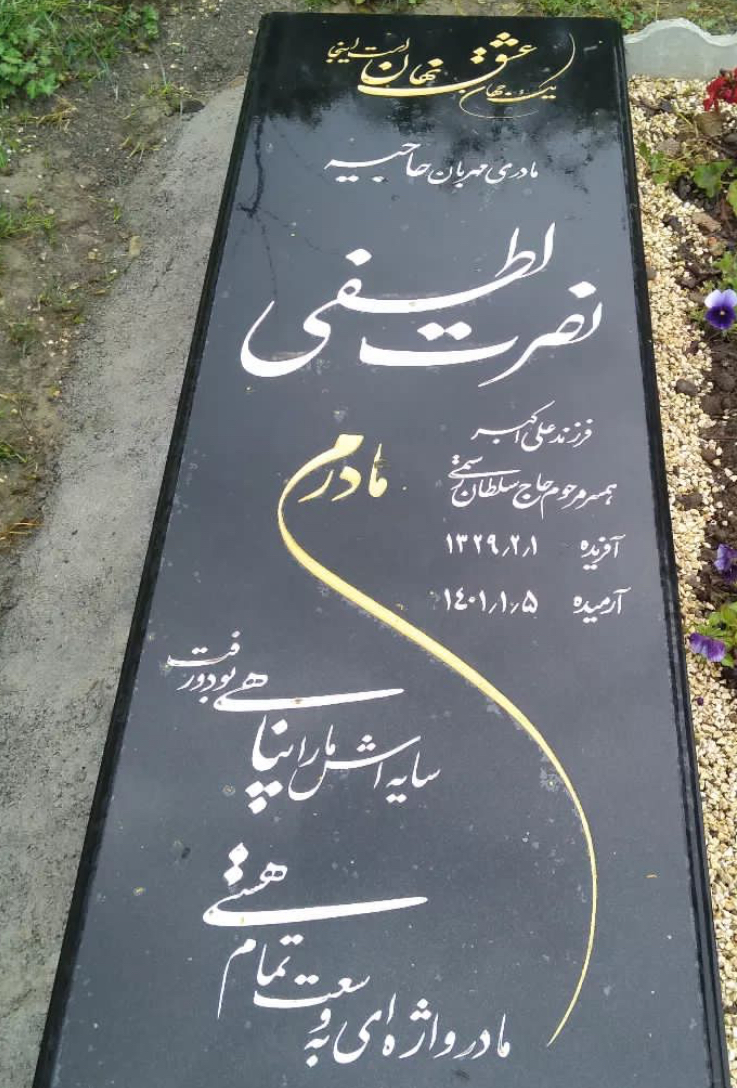 یک جهان عشق نهان است اینجا
مادری مهربان حاجیه
نصرت لطفی
فرزند علی اکبر
همسر مرحوم حاج سلطان رستمی
آفریده ۱۳۲۹٫۲٫۱
آرمیده ۱۴۰۱٫۱٫۵
مادرم
سایه اش ما را پناهی بود و رفت
مادر واژه ای به وسعت تمام هستی